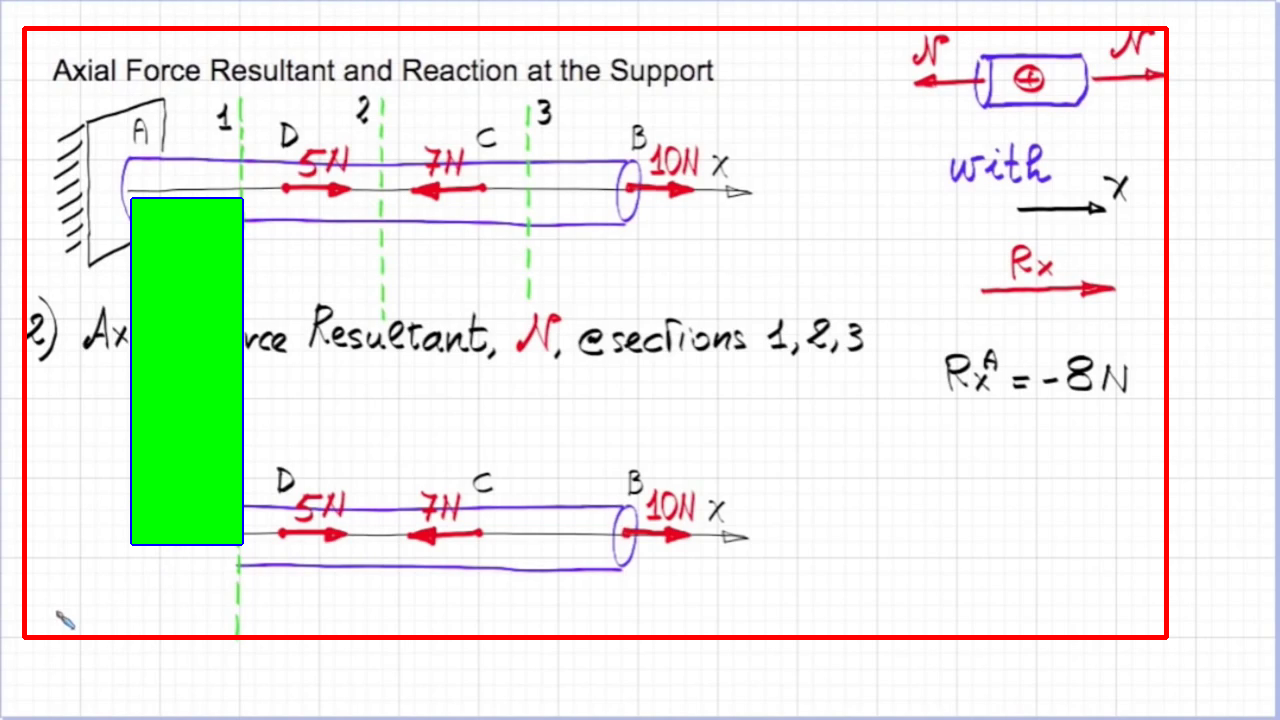 Axial Force Resultant and Reaction at the Support
N N
1 2 3
A D C B
5N 7N 10N X
with
X
Rx
2) Ax rce Resultant, N, @sections 1,2,3
RxA = -8N
D C B
5N 7N 10N X